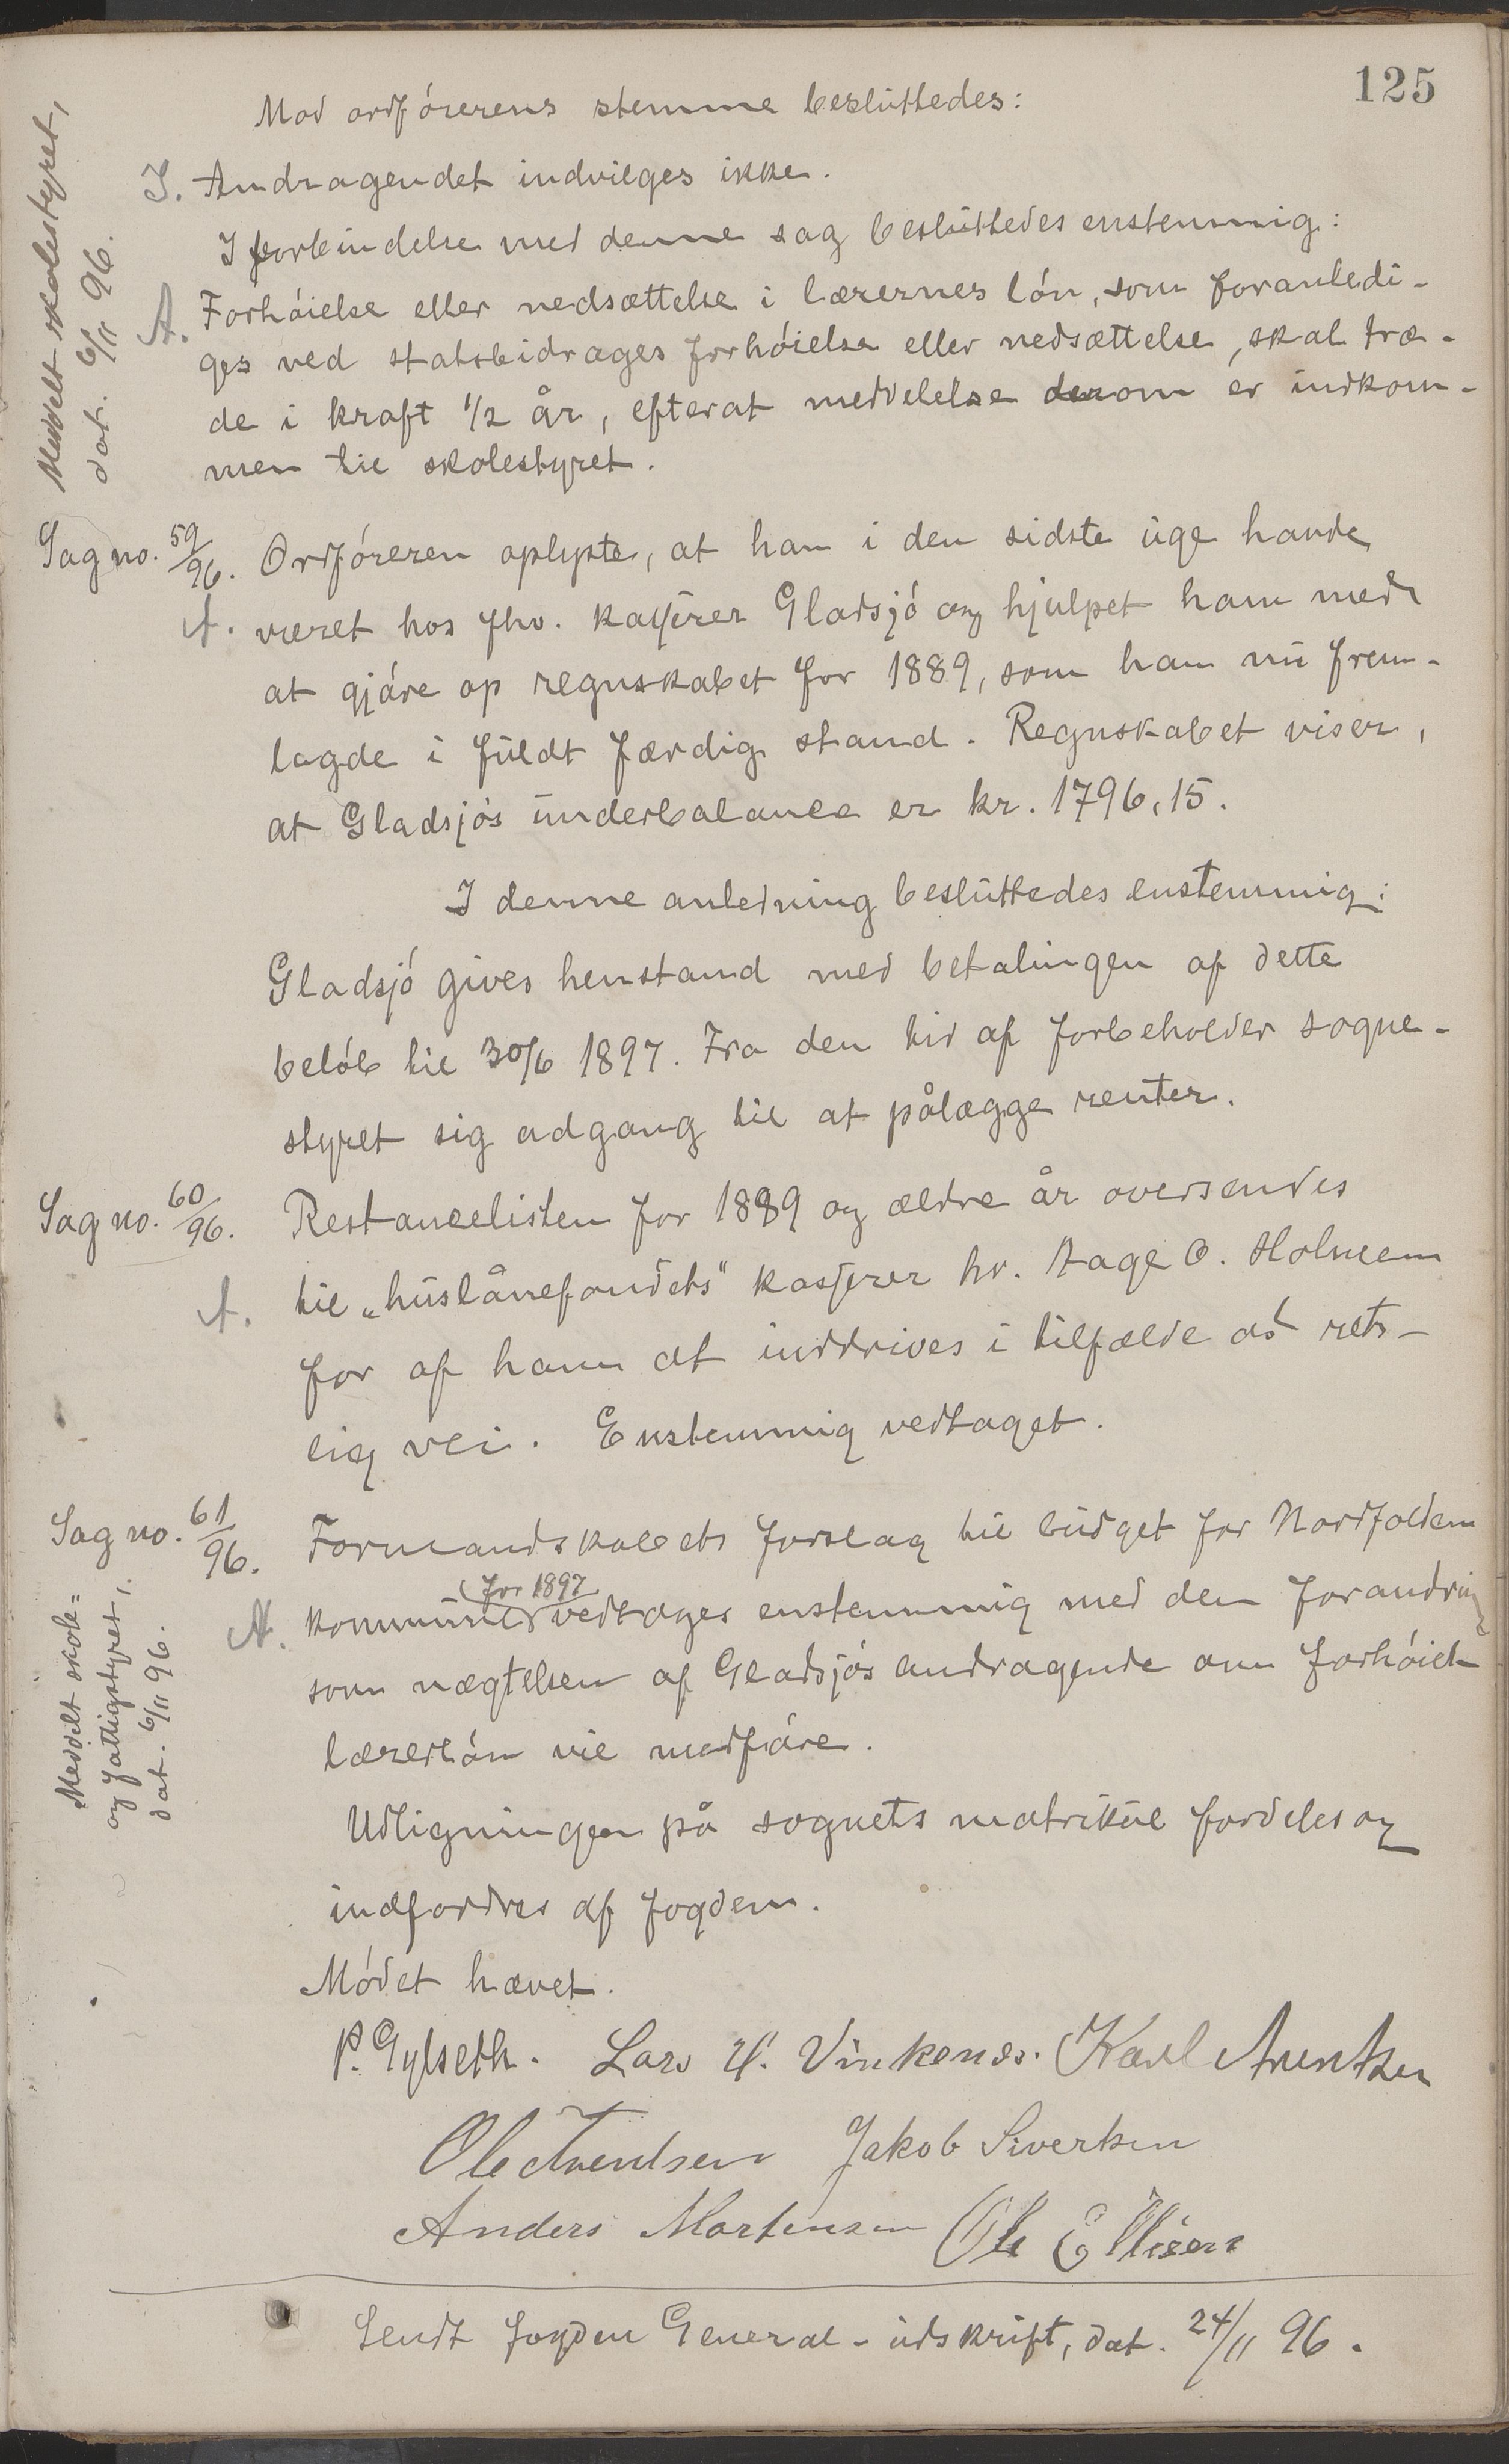 125
Mod ordførerens stemme besluttedes:
I. Andragendet indvilges ikke.
I forbindelse med denne sag besluttedes enstemmig:
A. Forhøielse eller nedsættelse i lærernes løn, som foranledi-
ges ved statsbidrages forhøielse eller nedsættelse, skal træ-
de i kraft 1/2 år, efterat meddelelse derom er indkom-
men til skolestyret.
Meddelt skolestyret,
dat. 6/11 96.
Sag no. 59/96. Ordføreren oplyste, at han i den sidste uge havde
A. været hos fhv. kasserer Gladsjø og hjulpet ham med
at gjøre op regnskabet for 1889, som han nu frem-
lagde i fuldt færdig stand. Regnskabet viser,
at Gladsjøs underbalance er kr. 1796,15.
I denne anledning besluttedes enstemmig:
Gladsjø gives henstand med betalingen af dette
beløb til 30/6 1897. Fra den tid af forbeholder sogne-
styret sig adgang til at pålægge renter.
Sag no. 60/96. Restancelisten for 1889 og ældre år oversendes
A. til „huslånefondets" kasserer hr. Hage O. Holmem
for af ham at inddrives i tilfælde ad rets-
lig vei. Enstemmig vedtaget.
Sag no. 61/96. Formandskabets forslag til budget for Nordfolden
(for 1897)
A. kommune vedtages enstemmig med den forandring
som nægtelsen af Gladsjøs andragende om forhøiet
lærerløn vil medføre.
Udligningen på sognets matrikul fordeles og
indfordres af fogden.
Meddelt skole=
og fattigstyret,
dat. 6/11 96.
Mødet hævet.
P. Gylseth. Lars H. Vinkenes. Karl Arentsen
Ole Arentsen Jakob Sivertsen
Anders Mortensen Ole Ellisen
Sendt fogden General-udskrift, dat. 24/11 96.